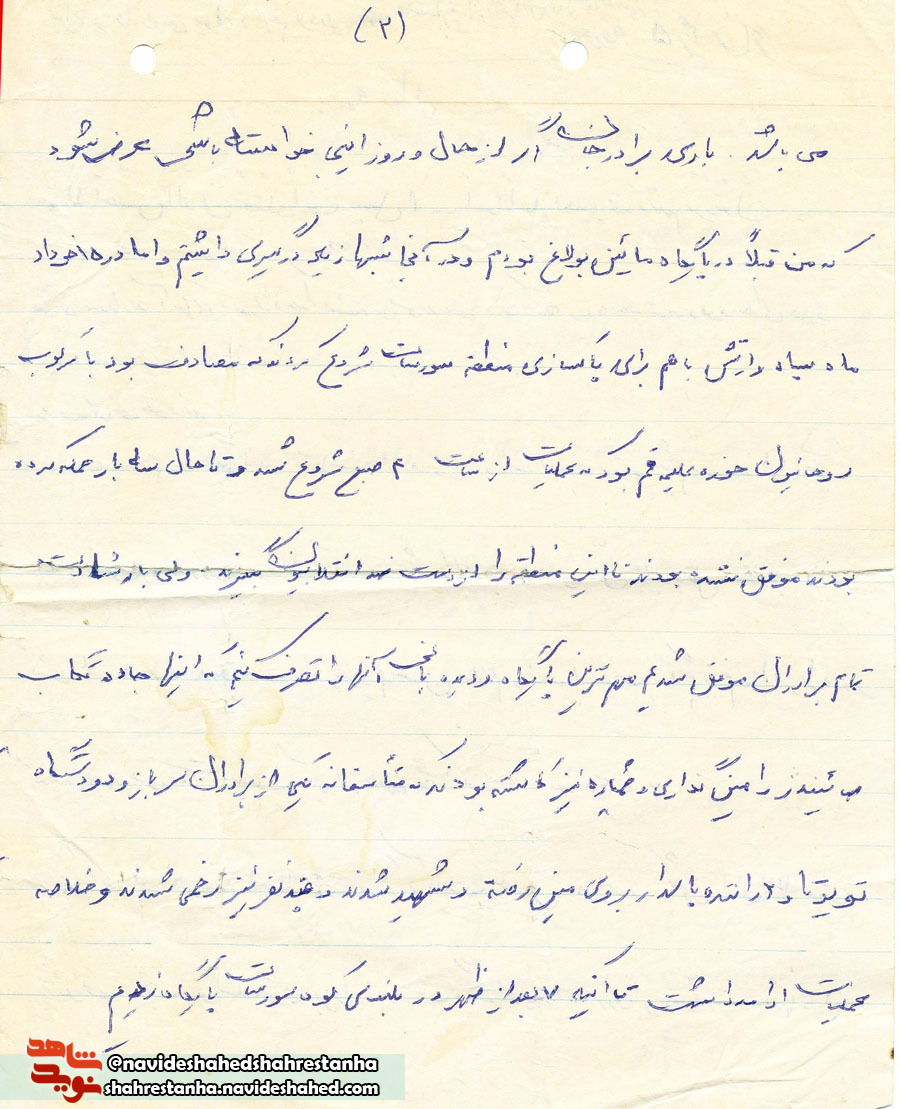 (۳)
می باشد. باری برادر جان اگر از حال و روز اینجانب خواسته باشی عرض شود
که من قبلاً در پایگاه مائین بولاغ بودم و در آنجا شبها زیاد درگیری داشتیم و اما در ۱۵ خرداد
ماه سپاه و ارتش با هم برای پاکسازی منطقه سورسات شروع کردند که مصادف بود با سرکوب
روحانیون حوزه علمیه قم بود که عملیات از ساعت ۴ صبح شروع شد و تا حال سه بار حمله کرده
بودند موفق نشده بودند تا این منطقه را از دست ضد انقلابیون بگیرند ولی با رشادت
تمام برادران موفق شدیم مهم ترین پایگاه و دیده بانی آنها را تصرف کنیم که اینها جاده تکاب
به بیندر را مین گذاری و خمپاره نیز کاشته بودند که متأسفانه یکی از برادران سرباز و دو دستگاه
تویوتا و راننده پاسدار بروی مین رفته و شهید شدند و چند نفر نیز زخمی شدند و خلاصه
عملیات ادامه داشت تا اینکه بعد از ظهر در بلندی کوه سورسات پایگاه زدیم
شاهد
نوید
@navideshahedshahrestanha
shahrestanha.navideshahed.com